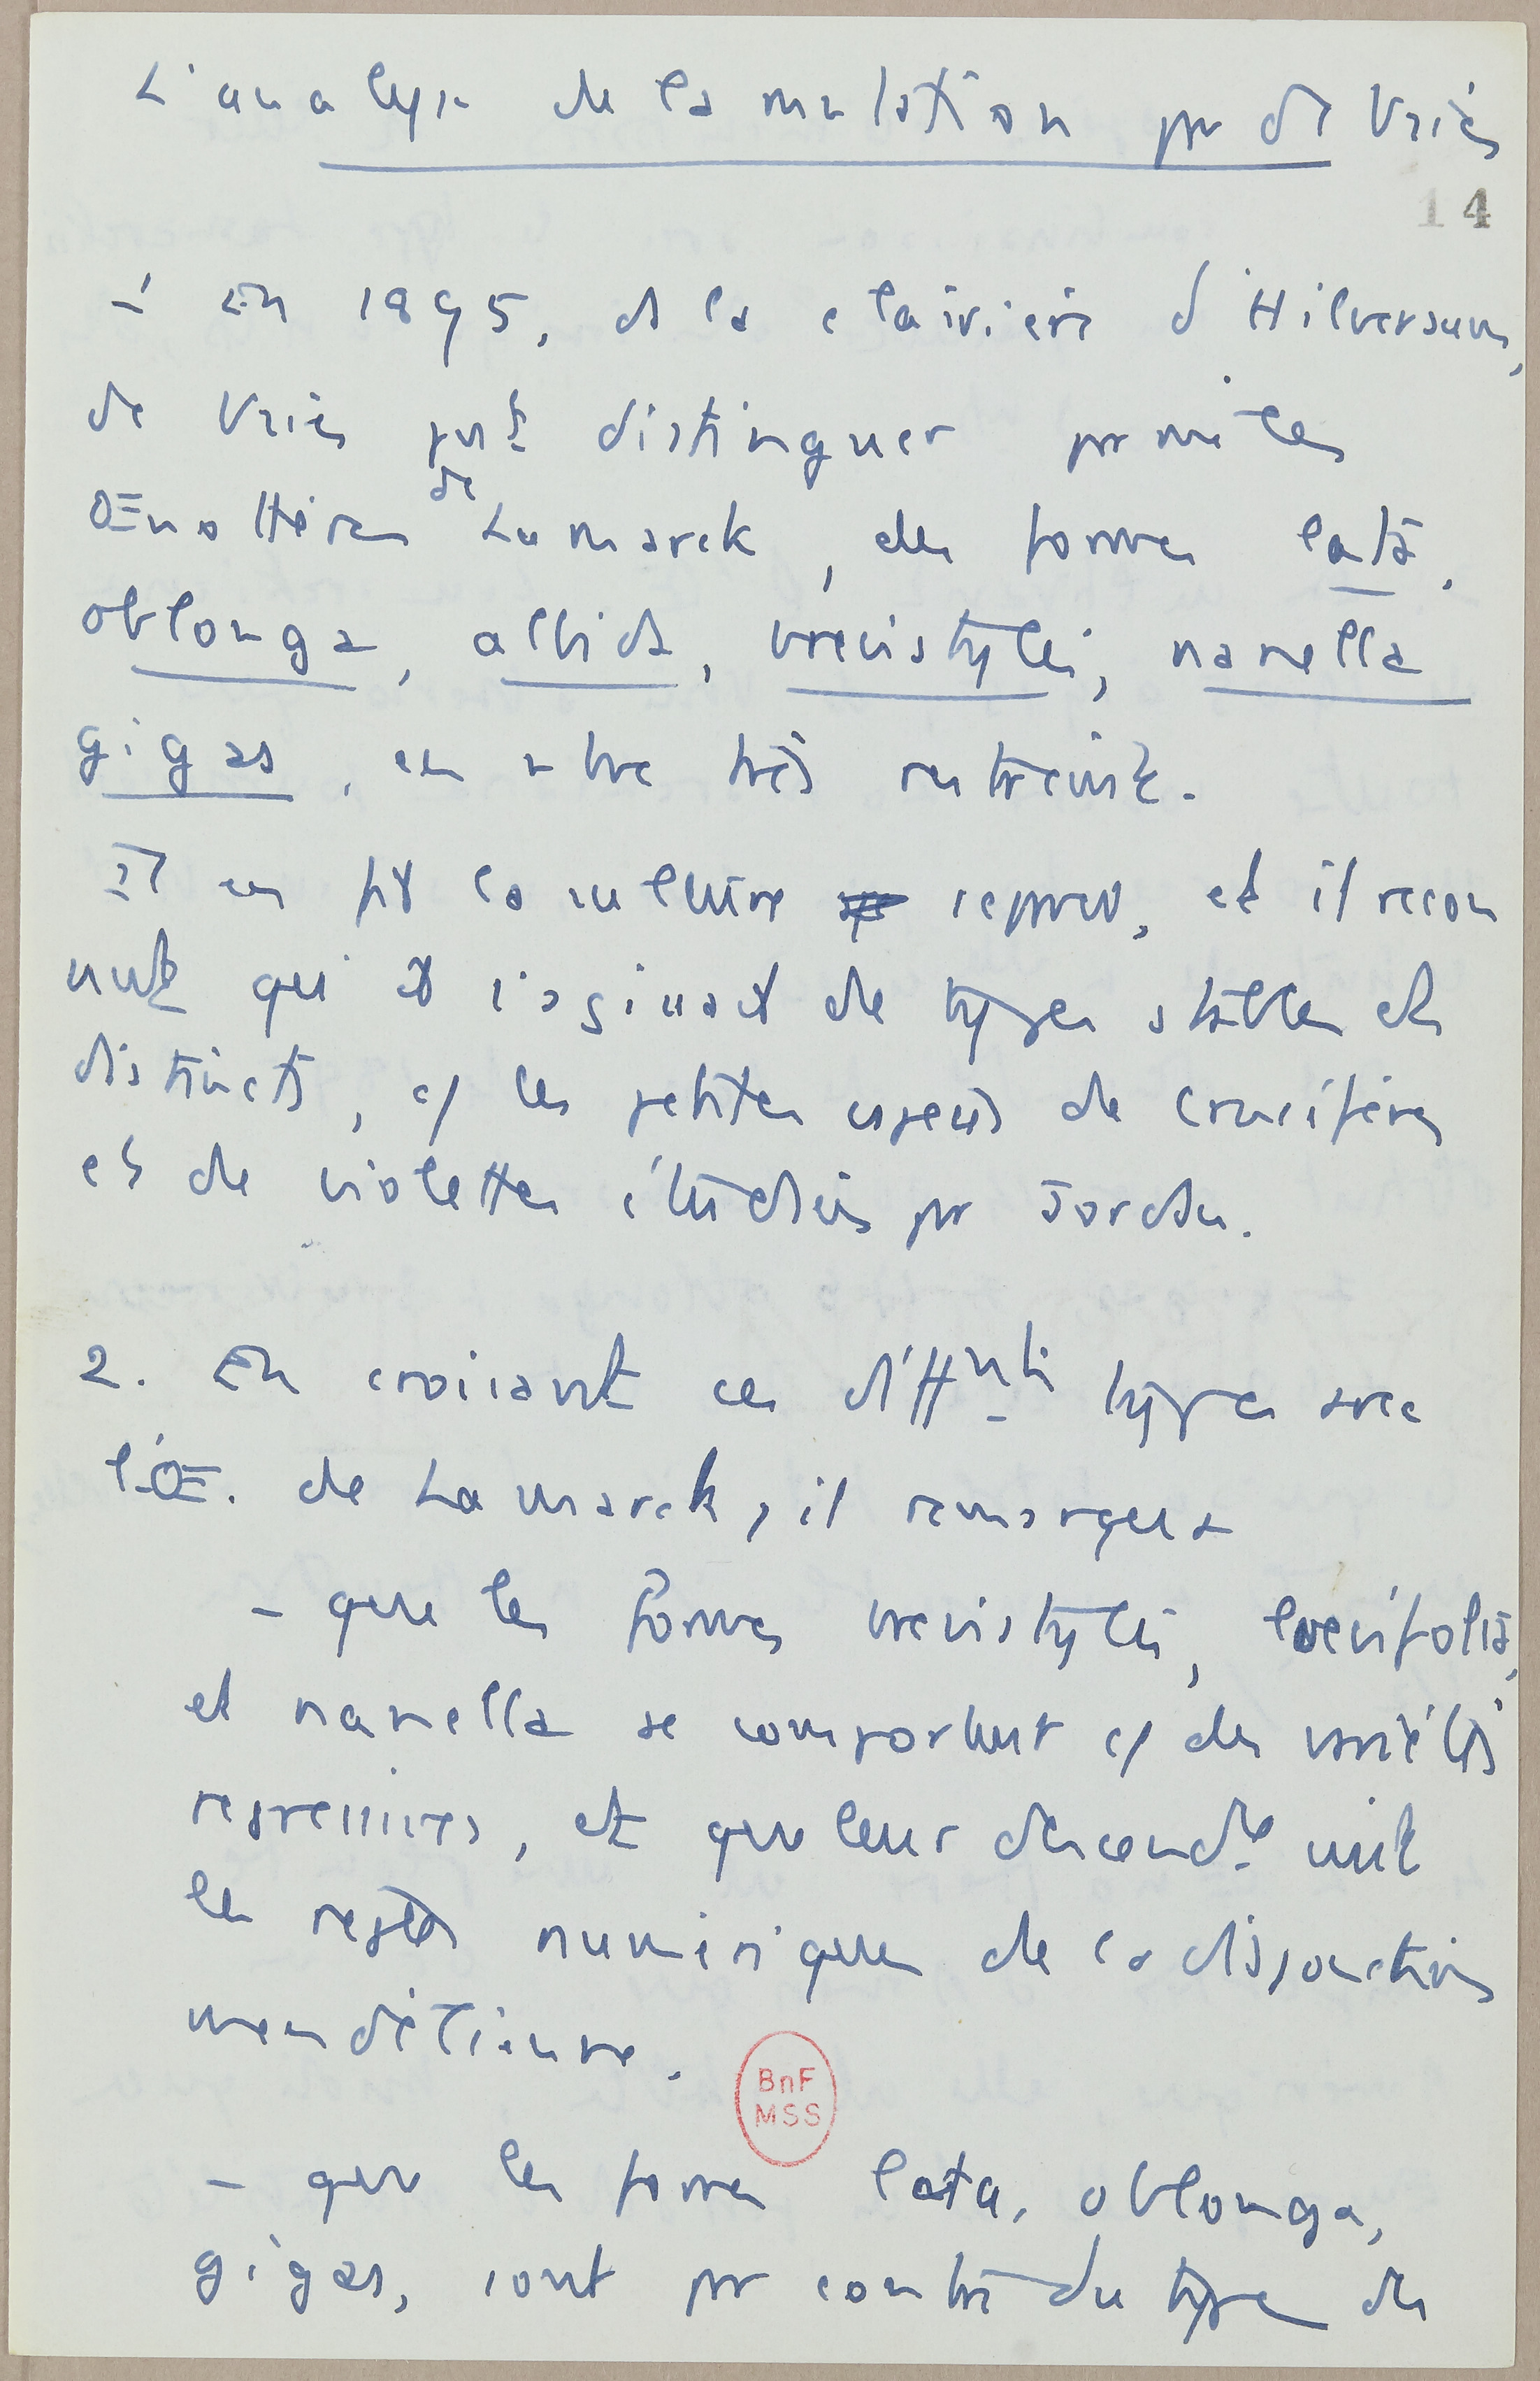 L'analyse de la mutation par de Vries
14
1 En 1895, ds la clairière d'Hilversum,
de Vries put distinguer parmi les
Œnothères de Lamarck, des formes lata,
oblonga, albida, brevistylis, nanella
gigas, en nbre très restreint.
Il en fit la culture séparée, et il recon
nut qu'il s'agissait de types stables et
distincts, c/ les petites espèces de crucifères
et de violettes étudiées par Jordan.
2. En croisant ces difffnts types avec
l'Œ. de Lamarck, il remarqua
- que les formes brevistylis, laevifolia,
et nanella se comportent c/ des variétés
régressives, et que leur descendce suit
les règles numériques de la disjonction
mendélienne.
BnF
MSS
- que les formes lata, oblonga,
gigas, sont par contre du type des